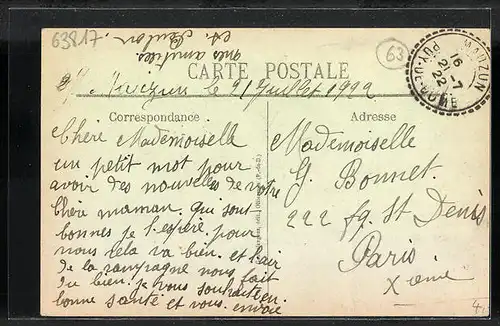 63817
mes amitiés
et
63
CARTE POSTALE
le 21 Juillet 1922
MAUZUN
16
21-7
22
PUY-DE-DOME
Correspondance
Adresse
Chère Mademoiselle
un petit mot pour
avoir des nouvelles de votre
chère maman. qui sont
bonnes je l'espère, pour
nous cela va bien. et l'air
de la campagne nous fait
du bien. je vous souhaite en
bonne santé et vous envoie
Mademoiselle
G. Bonnet.
222 fg. St Denis
Paris
Xème